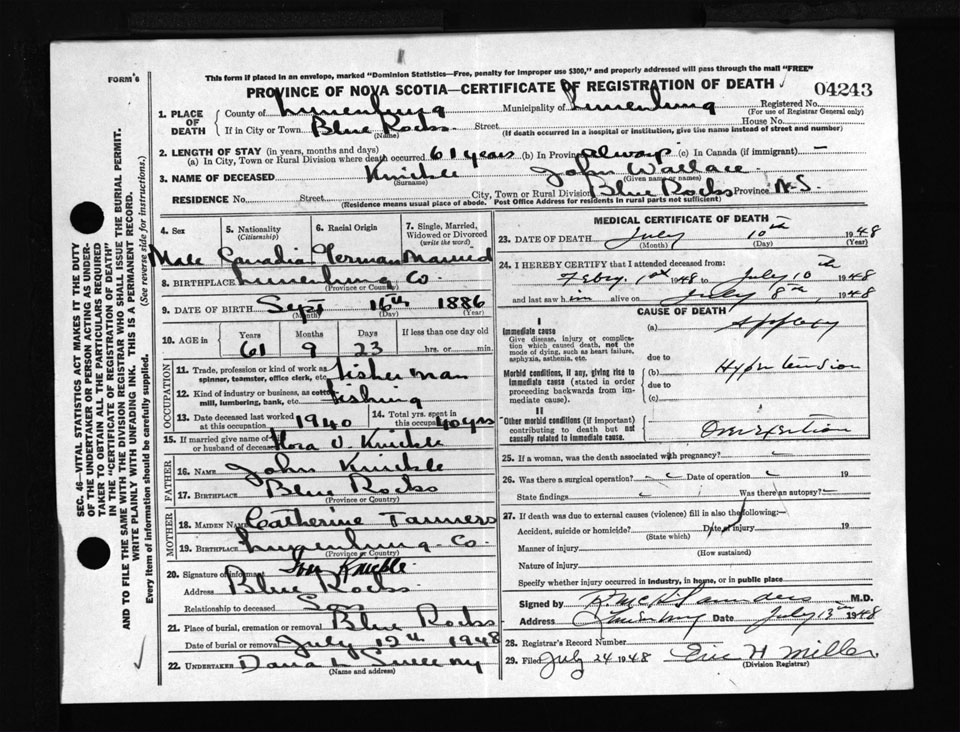 FORM 6
This form if placed in an envelope, marked "Dominion Statistics—Free, penalty for improper use $300," and properly addressed will pass through the mail "FREE"
PROVINCE OF NOVA SCOTIA—CERTIFICATE OF REGISTRATION OF DEATH 04243
1. PLACE OF DEATH County of Lunenburg Municipality of Lunenburg Registered No.
(For use of Registrar General only)
If in City or Town Blue Rocks Street House No.
(Name) (If death occurred in a hospital or institution, give the name instead of street and number)
2. LENGTH OF STAY (in years, months and days)
(a) In City, Town or Rural Division where death occurred 61 years (b) In Province always (c) In Canada (if immigrant) —
3. NAME OF DECEASED Knickle John Wallace
(Surname) (Given name or names)
RESIDENCE No. Street City, Town or Rural Division Blue Rocks Province N.S.
(Residence means usual place of abode. Post Office Address for residents in rural parts not sufficient)
4. Sex 5. Nationality (Citizenship) 6. Racial Origin 7. Single, Married, Widowed or Divorced (write the word)
Male Canadia German Married
8. BIRTHPLACE Lunenburg Co.
(Province or Country)
9. DATE OF BIRTH Sept 16th 1886
(Month) (Day) (Year)
10. AGE in Years Months Days If less than one day old
61 9 23 hrs. or min.
OCCUPATION
11. Trade, profession or kind of work as spinner, teamster, office clerk, etc. Fisherman
12. Kind of industry or business, as cotton mill, lumbering, bank, etc. Fishing
13. Date deceased last worked at this occupation 1940 14. Total yrs. spent in this occupation 40 yrs
15. If married give name of wife or husband of deceased Flora V. Knickle
FATHER
16. NAME John Knickle
17. BIRTHPLACE Blue Rocks
(Province or Country)
MOTHER
18. MAIDEN NAME Catherine Tanners
19. BIRTHPLACE Lunenburg Co.
(Province or Country)
20. Signature of informant Knickle
Address Blue Rocks
Relationship to deceased Son
21. Place of burial, cremation or removal Blue Rocks
Date of burial or removal July 12th 1948
22. UNDERTAKER Dana L Sweeny
(Name and address)
MEDICAL CERTIFICATE OF DEATH
23. DATE OF DEATH July 10th 1948
(Month) (Day) (Year)
24. I HEREBY CERTIFY that I attended deceased from:
Febry. 1st 1948 to July 10th 1948
and last saw him alive on July 8th 1948
CAUSE OF DEATH
I
Immediate cause
Give disease, injury or complication which caused death, not the mode of dying, such as heart failure, asphyxia, asthenia, etc.
(a) Apoplexy
due to
Morbid conditions, if any, giving rise to immediate cause (stated in order proceeding backwards from immediate cause).
(b) Hypertension
due to
(c)
II
Other morbid conditions (if important) contributing to death but not causally related to immediate cause.
Overexertion
25. If a woman, was the death associated with pregnancy?
26. Was there a surgical operation? Date of operation 19
State findings Was there an autopsy?
27. If death was due to external causes (violence) fill in also the following:—
Accident, suicide or homicide? Date of injury 19
(State which)
Manner of injury
(How sustained)
Nature of injury
Specify whether injury occurred in industry, in home, or in public place
Signed by R. McK Saunders M.D.
Address Lunenburg Date July 13th 1948
28. Registrar's Record Number
29. Filed July 24 1948 Eric H Miller
(Division Registrar)
SEC. 46—VITAL STATISTICS ACT MAKES IT THE DUTY
OF THE UNDERTAKER OR PERSON ACTING AS UNDERTAKER TO OBTAIN ALL THE PARTICULARS REQUIRED
IN THE "CERTIFICATE OF REGISTRATION OF DEATH"
AND TO FILE THE SAME WITH THE DIVISION REGISTRAR WHO SHALL ISSUE THE BURIAL PERMIT.
WRITE PLAINLY WITH UNFADING INK. THIS IS A PERMANENT RECORD.
Every item of information should be carefully supplied. (See reverse side for instructions.)